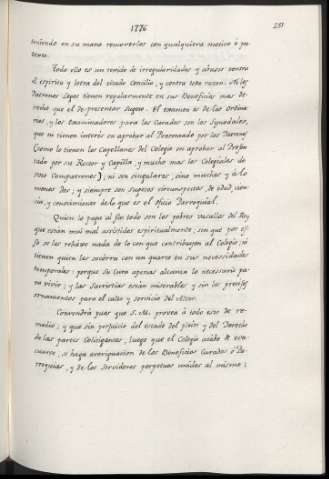 1776
251
teniendo en su mano removerlos con qualquiera motivo ó pre
texto.
Todo esto es un texido de irregularidades y abusos contra
el espiritu y letra del citado Concilio, y contra toda razon. Ni los
Patronos Legos tienen regularmente en sus Beneficios mas de-
recho que el de presentar Sugeto. El examen es de los Ordina-
rios, y los Examinadores para los Curados son los Synodales,
que no tienen interés en aprobar al Presentado por los Patronos
(como lo tienen los Capellanes del Colegio en aprobar al Presen-
tado por su Rector y Capilla, y mucho mas los Colegiales de
sus Companeros); ni son singulares, sino muchas y á lo
menos tres; y siempre son sugetos circunspectos de edad, cien-
cia, y conocimiento de lo que es el oficio Parroquial.
Quien lo paga al fin todo son los pobres vasallos del Rey
que están mui mal asistidos espiritualmente; sin que por es-
to se les rebaxe nada de lo con que contribuyen al Colegio; ni
tienen quien les socorra con un quarto en sus necesidades
temporales: porque su Cura apenas alcanza lo necesario pa-
ra vivir; y las Sacristias están miserables y sin los precisos
ornamentos para el culto y servicio del Altar.
Convendrá pues que S. M. provea á todo esto de re-
medio; y que sin perjuicio del estado del pleito y del Derecho
de las partes Colitigantes, luego que el Colegio acabe de eva-
cuarse, se haga averiguacion de los Beneficios Curados ó Pa-
rroquias, y de los Servideros perpetuos unidos al mismo;